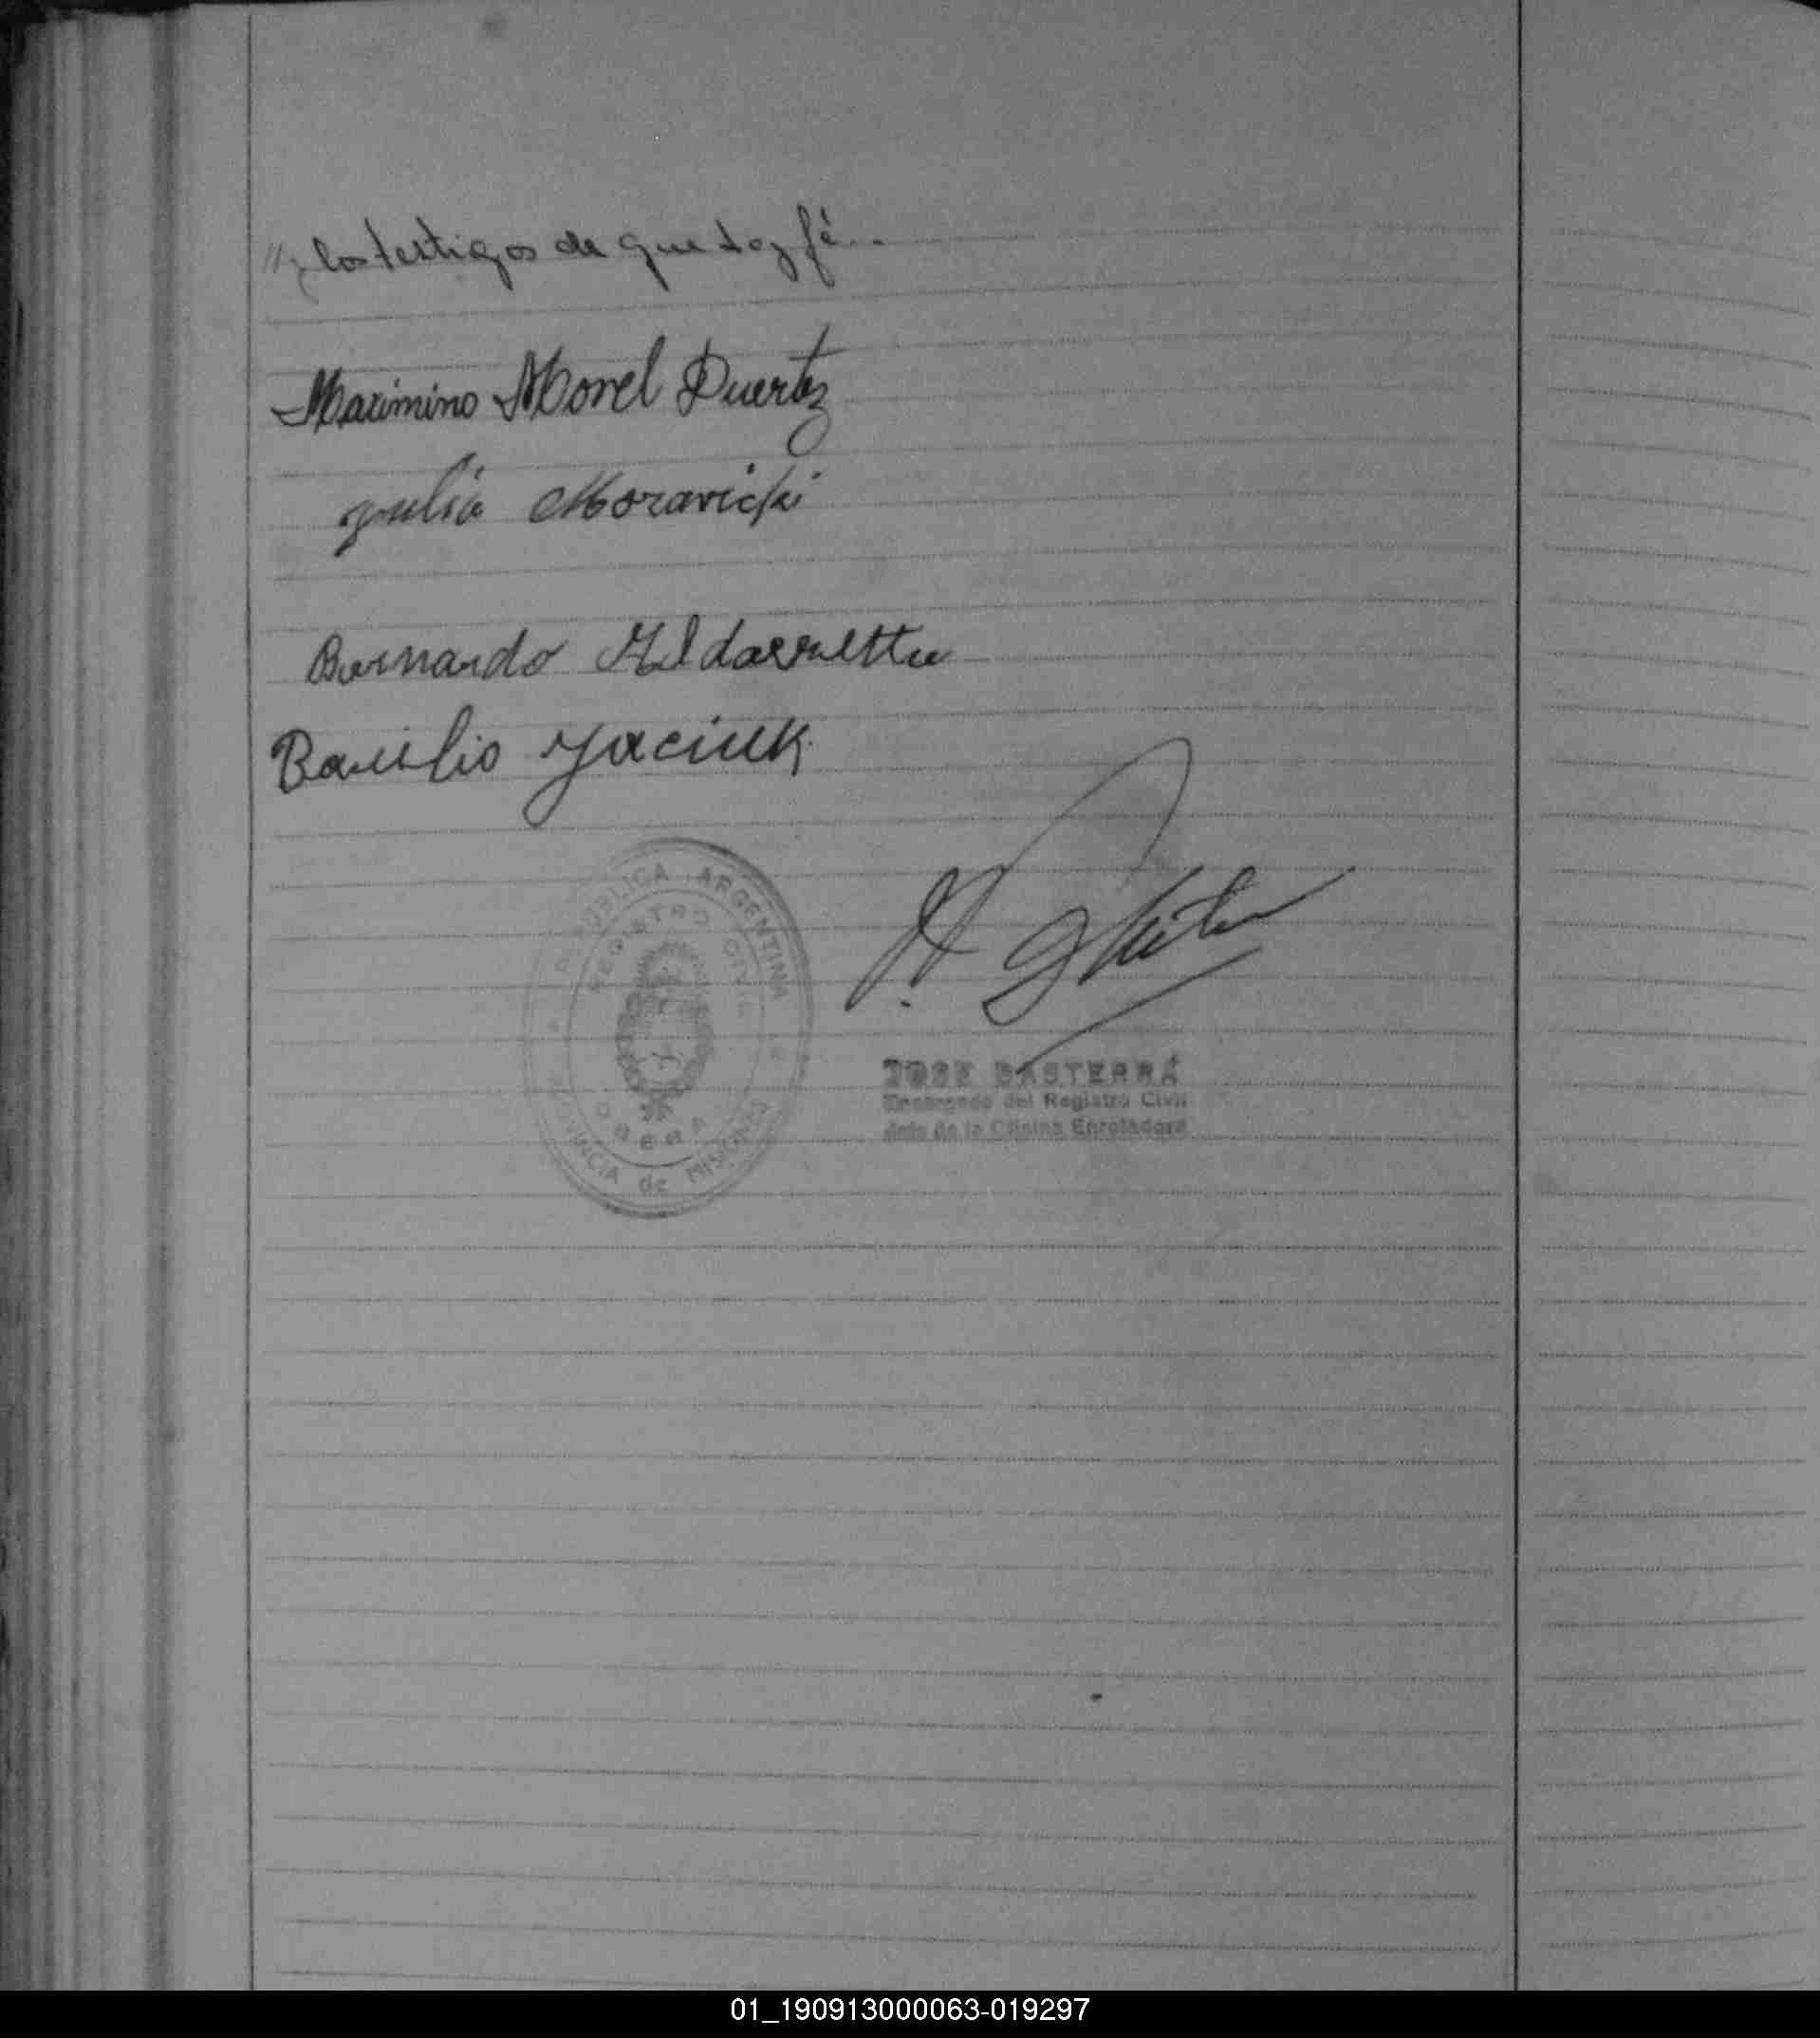 y los testigos de que doy fé..
Maximino Morel Duertez
Julia Moravicki
Bernardo
Basilio Yaciuk
REPUBLICA ARGENTINA
REGISTRO CIVIL
OBERA
PROVINCIA de MISIONES
JOSE BASTERRA
Encargado del Registro Civil
Jefe de la Oficina Enroladora
01_190913000063-019297